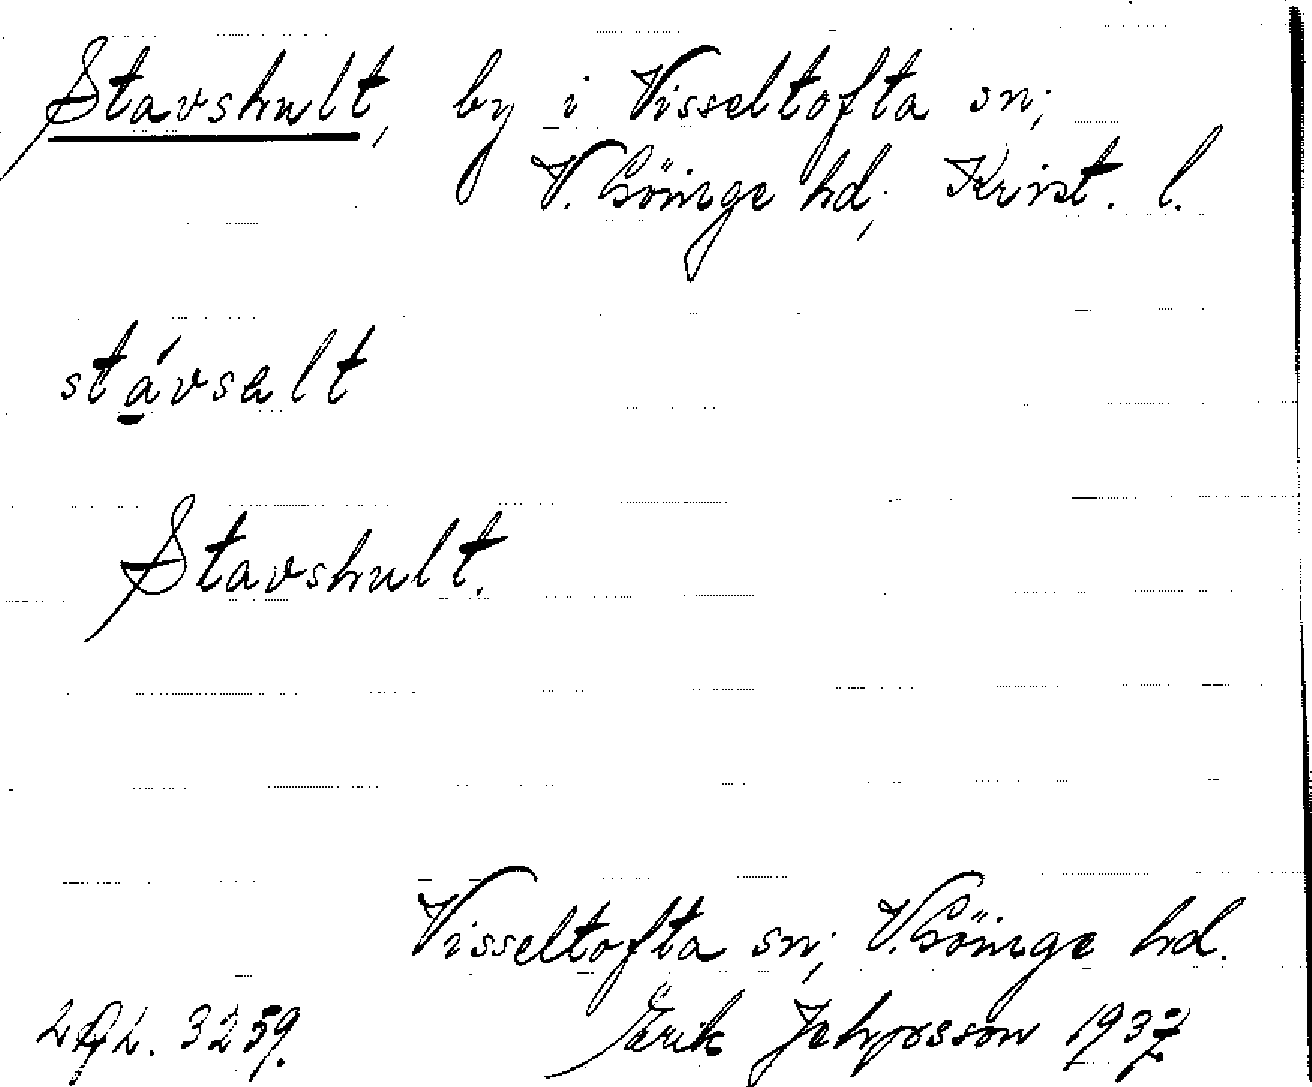 Stavshult, by i Visseltofta sn;
V. Göinge hd; Krist. l.
stávsalt
Stavshult.
Visseltofta sn; V. Göinge hd.
3259. Erik Jeppsson 1937